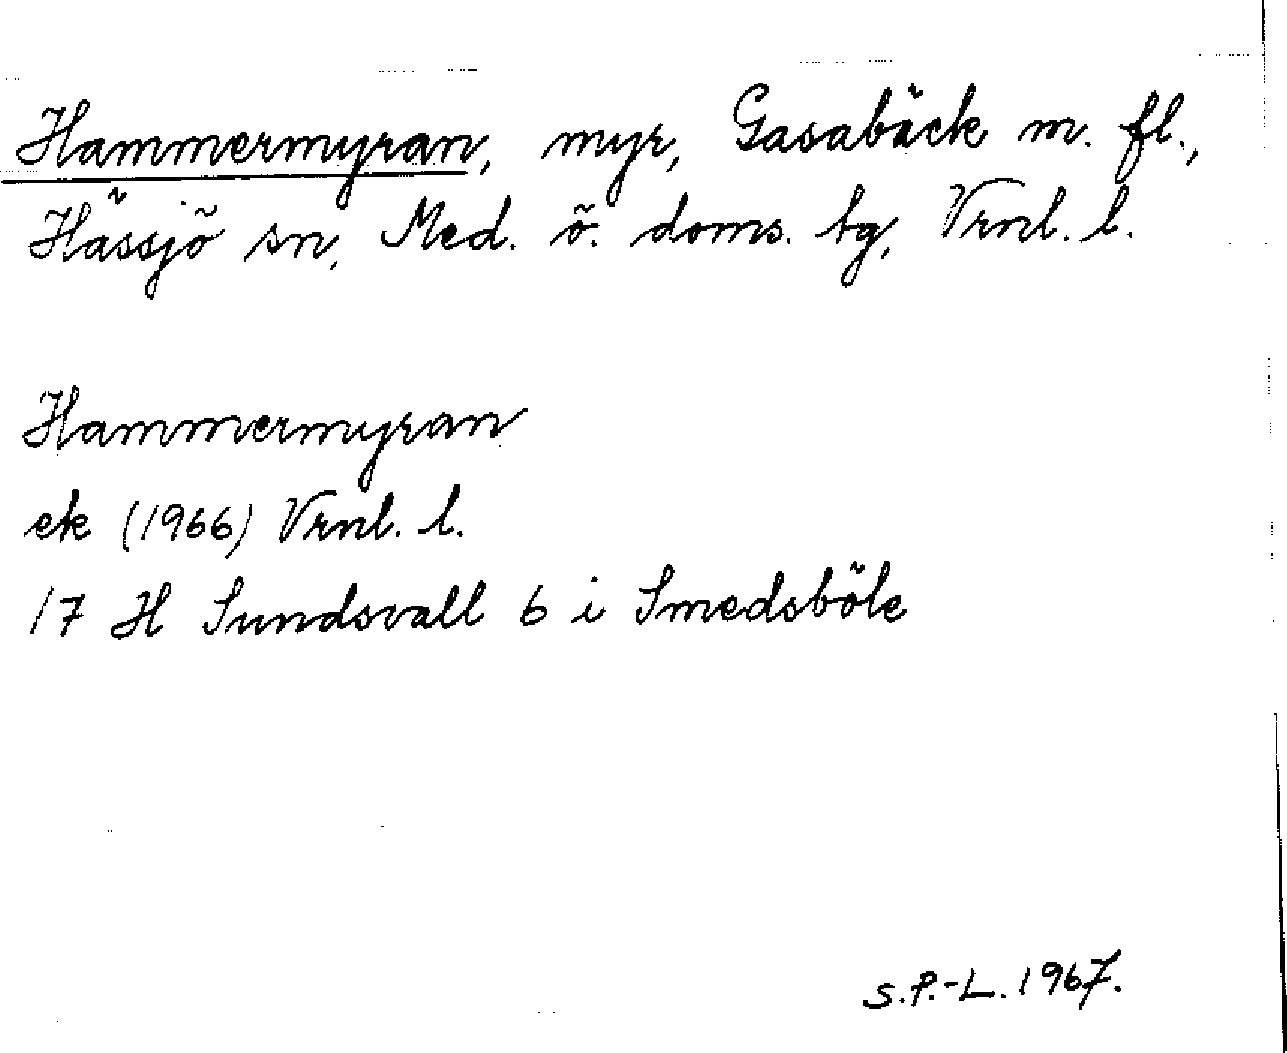 Hammermyran, myr, Gasabäck m. fl.,
Hässjö sn, Med. ö. doms. tg, Vrnl. l.
Hammermyran
ek (1966) Vrnl. l.
17 H Sundsvall 6 i Smedsböle
S.P.-L. 1967.